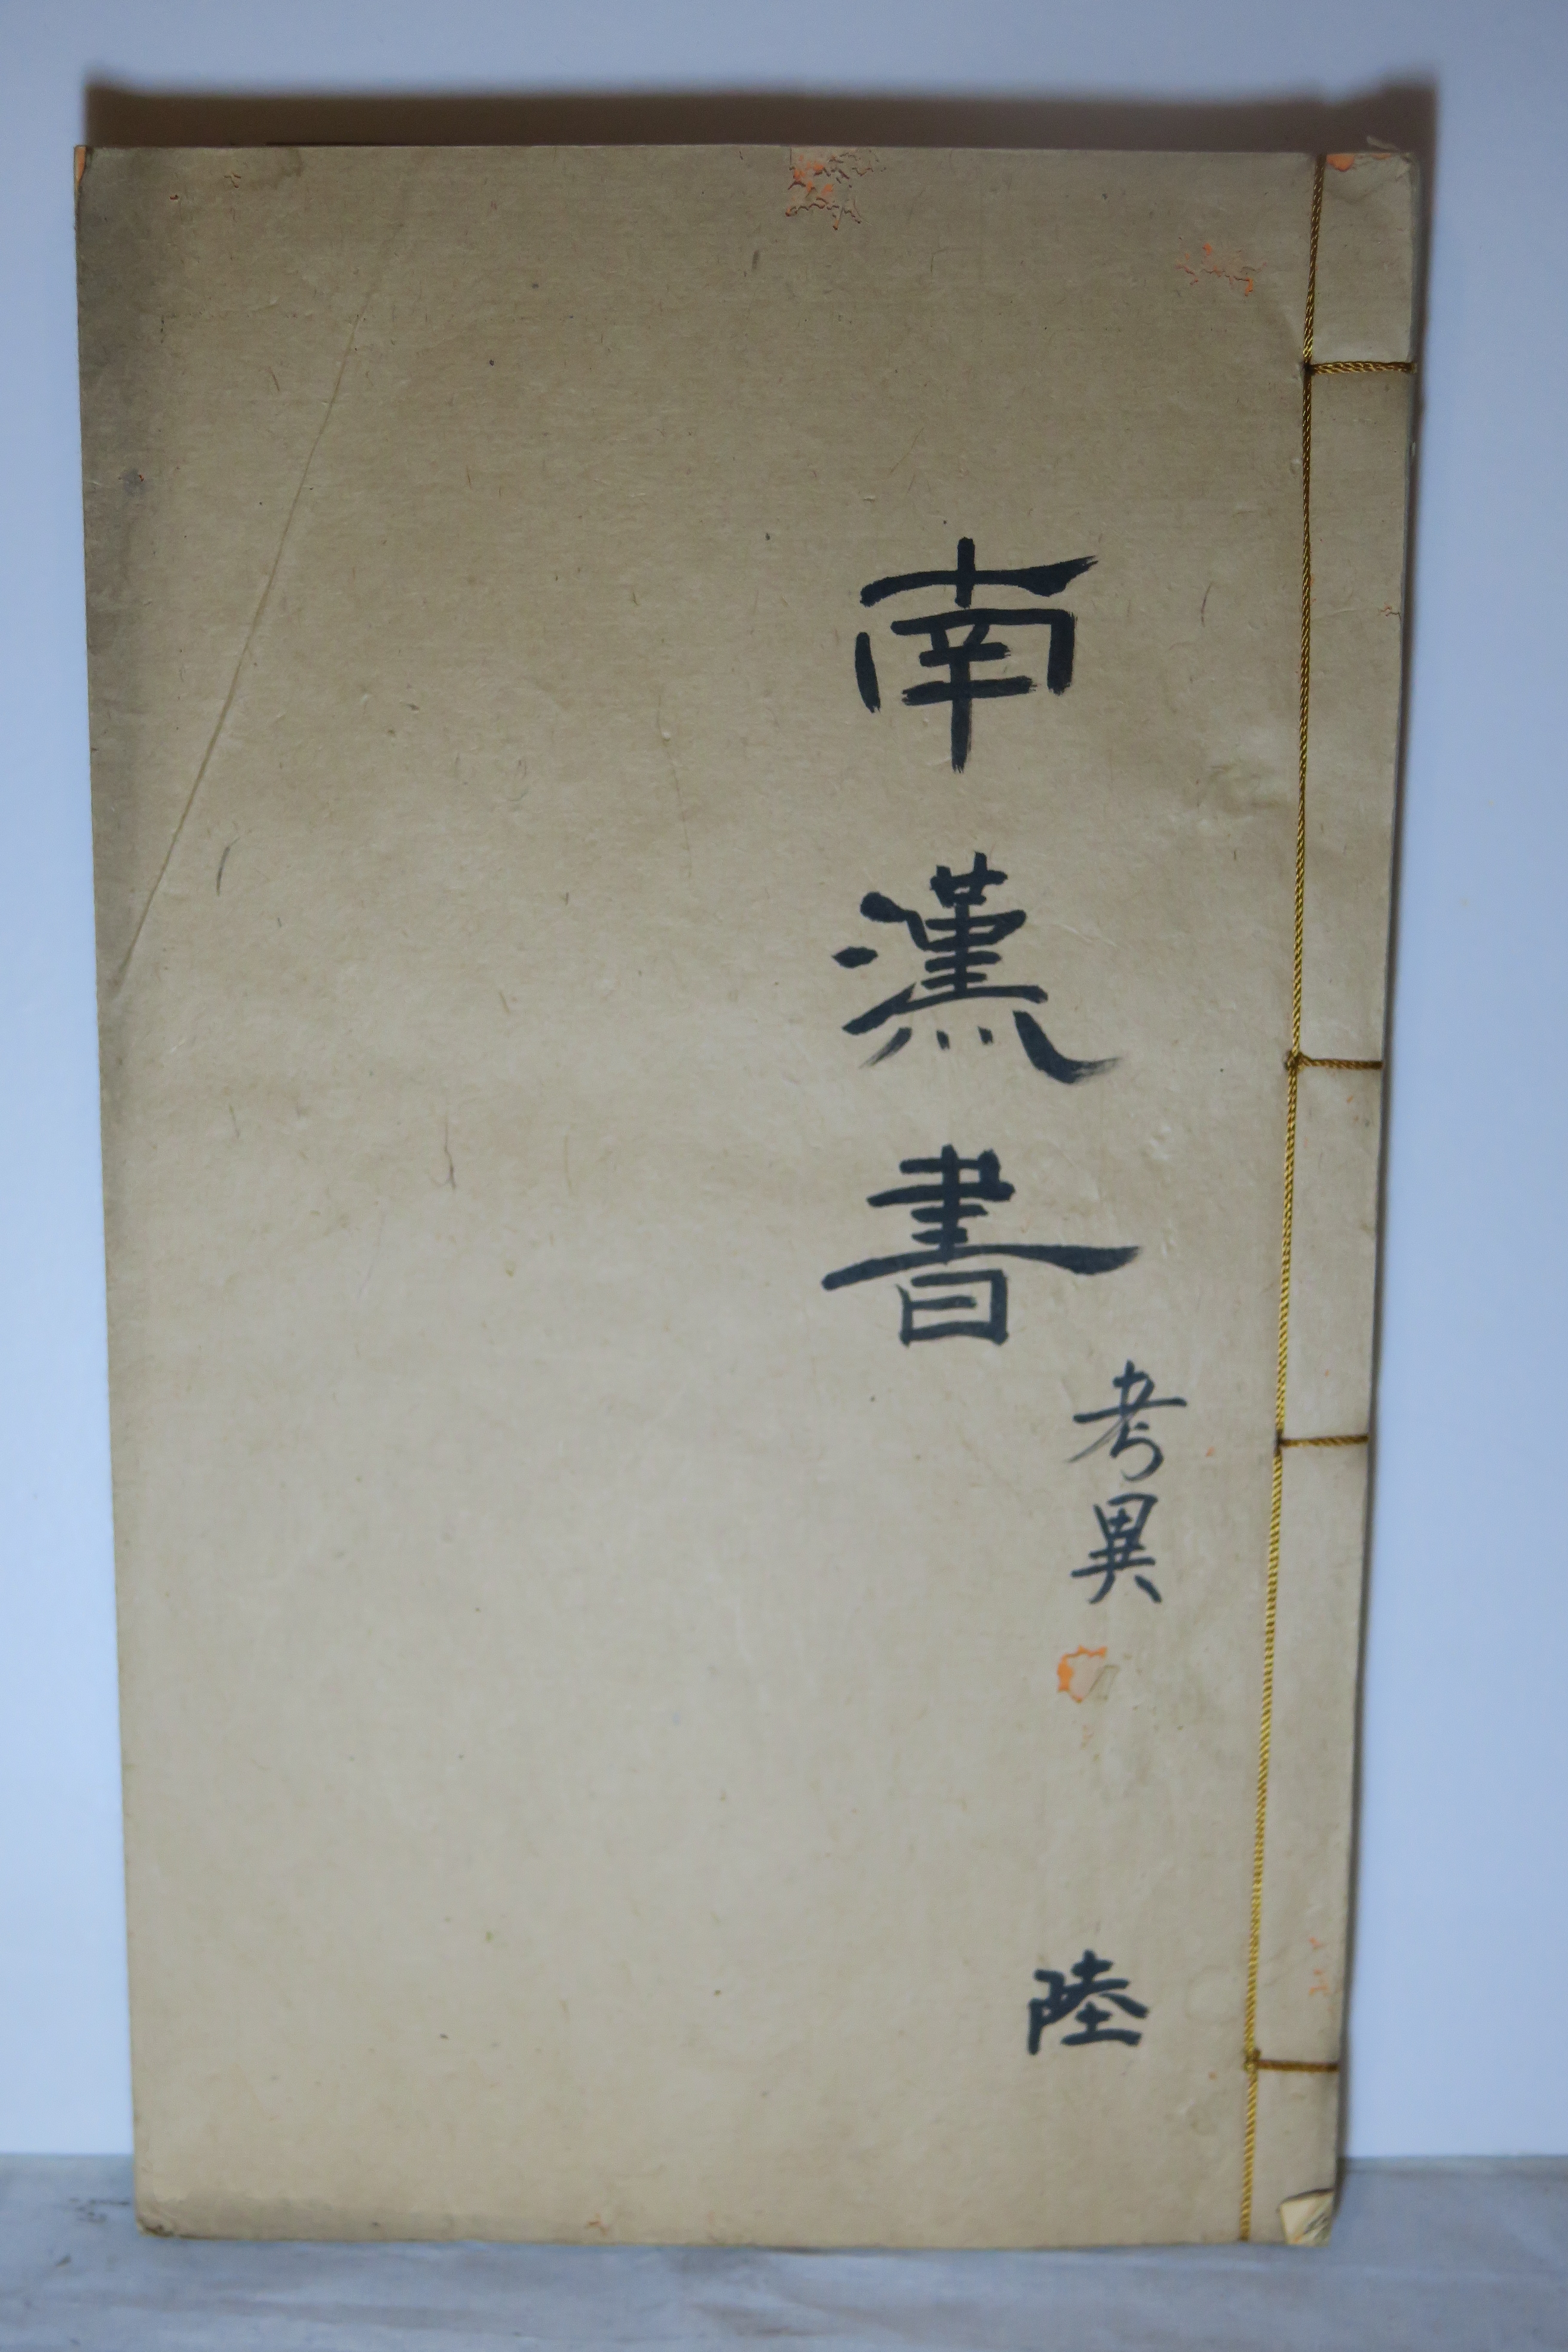 南漢書
考異
陸